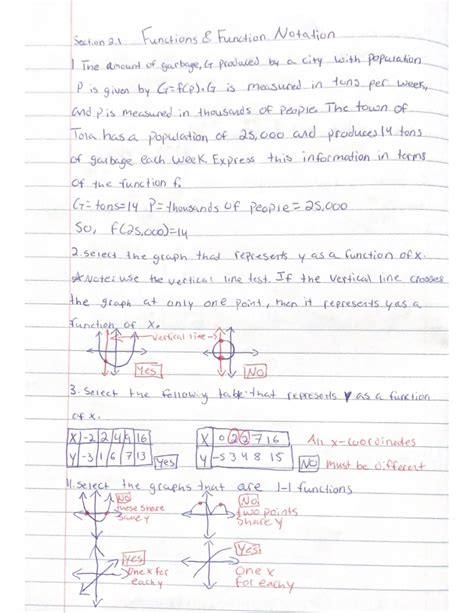 Section 2.1 Functions & Function Notation
1. The amount of garbage, G produced by a city with population
P is given by G=f(p). G is measured in tons per week,
and p is measured in thousands of people. The town of
Tola has a population of 25,000 and produces 14 tons
of garbage each week. Express this information in terms
of the function f.
G=tons=14 P=thousands of people=25,000
So, f(25,000)=14
2. Select the graph that represents y as a function of x.
*Note: use the vertical line test. If the vertical line crosses
the graph at only one point, then it represents y as a
function of x.
vertical line
Yes No
3. Select the following table that represents y as a function
of x.
X -2 2 4 16 X 0 2 2 7 16 All x-coordinates
Y -3 1 6 7 13 Yes Y -5 3 4 8 15 No must be different
Select the graphs that are 1-1 functions
No No
these share two points
same y share y
Yes Yes
One x for One x
each y for each y